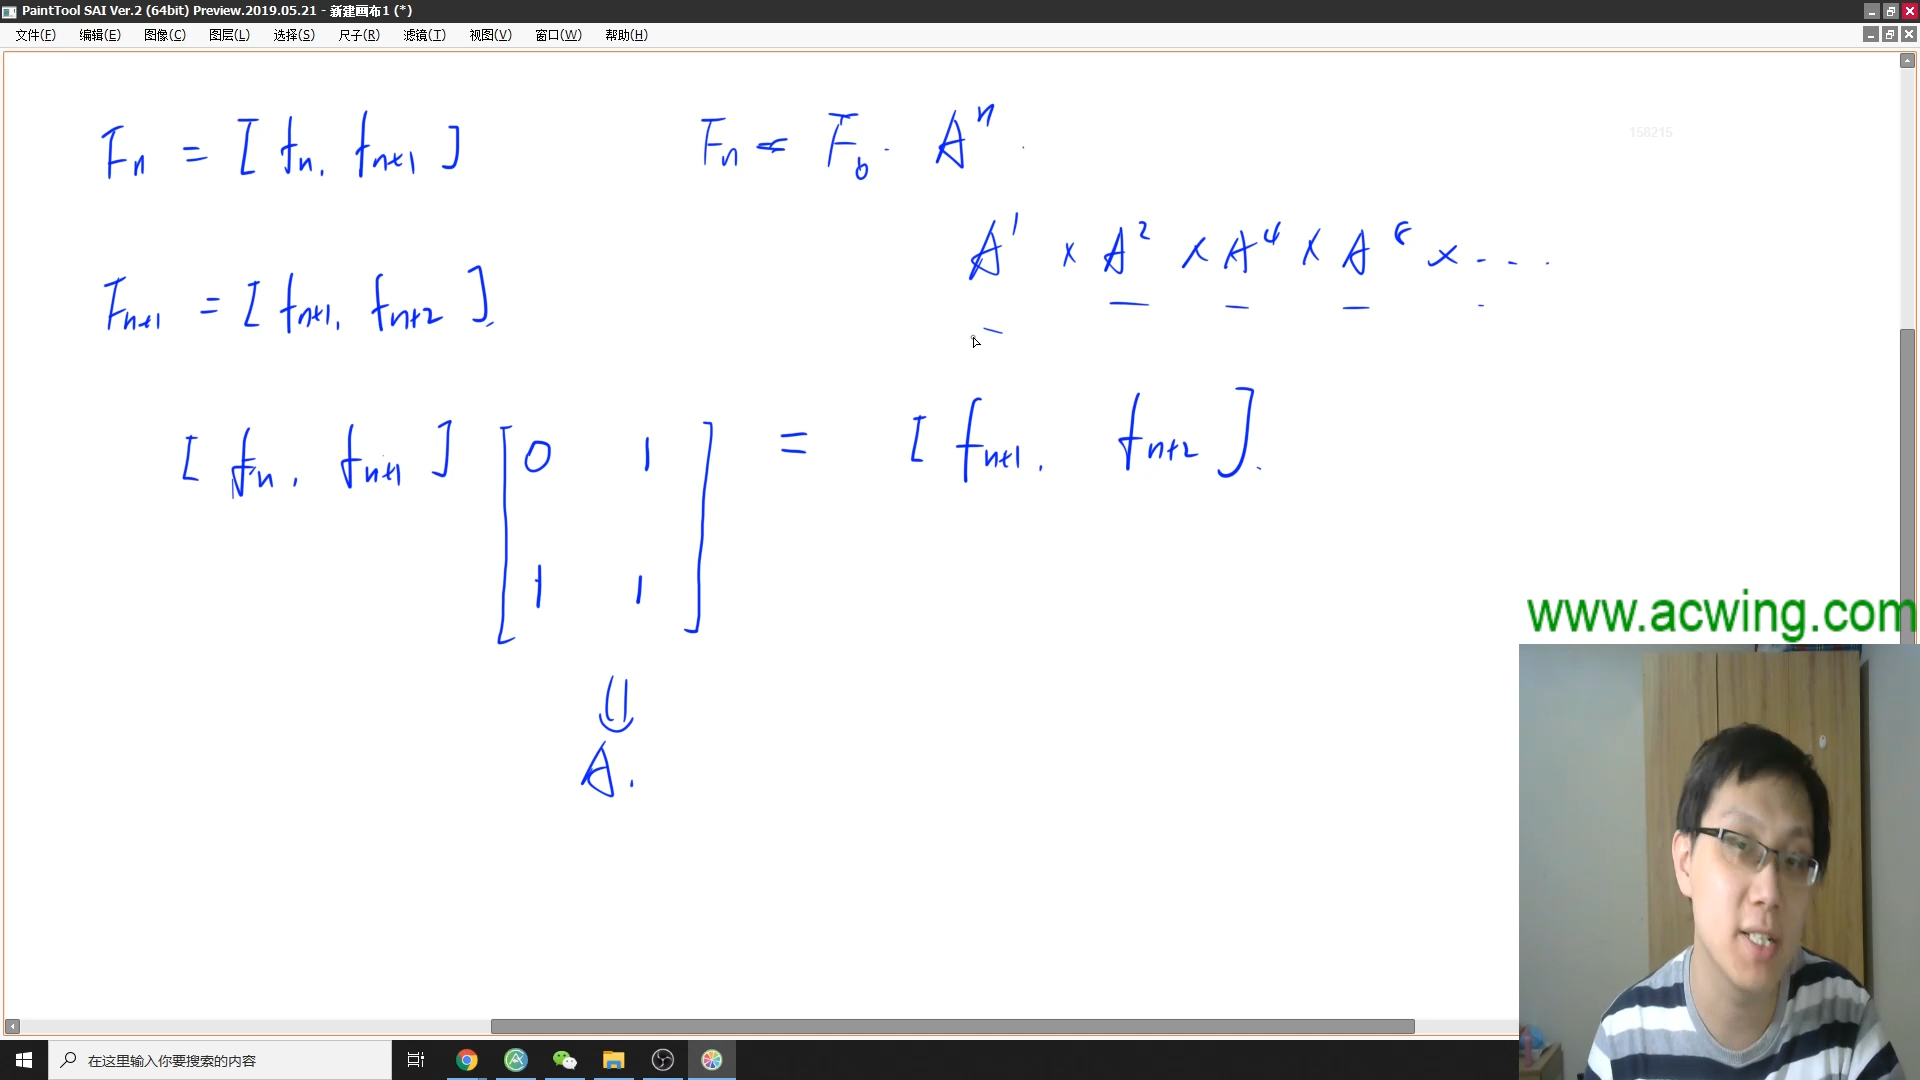 PaintTool SAI Ver.2 (64bit) Preview.2019.05.21 - 新建画布1 (*)
文件(F) 编辑(E) 图像(C) 图层(L) 选择(S) 尺子(R) 滤镜(T) 视图(V) 窗口(W) 帮助(H)
158215
Fn = [fn, fn+1]
Fn = F0 · A^n
A^1 × A^2 × A^4 × A^8 × ...
Fn+1 = [fn+1, fn+2].
[fn, fn+1] [0 1
1 1] = [fn+1, fn+2].
A.
www.acwing.com
在这里输入你要搜索的内容